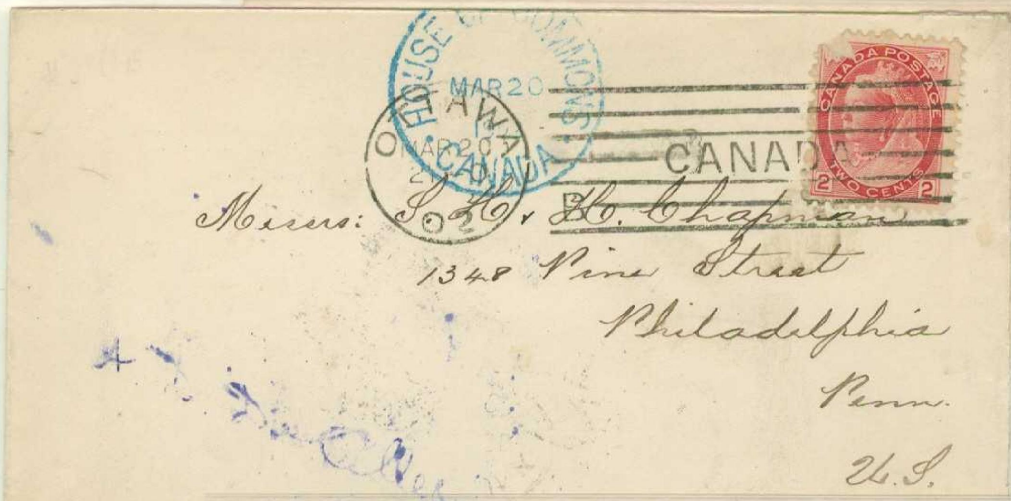 HOUSE OF COMMONS
MAR 20
CANADA
OTTAWA
MAR 20
02
CANADA
CANADA POSTAGE
2 TWO CENTS 2
Messrs: S. H. & H. Chapman
1348 Pine Street
Philadelphia
Penn.
U.S.